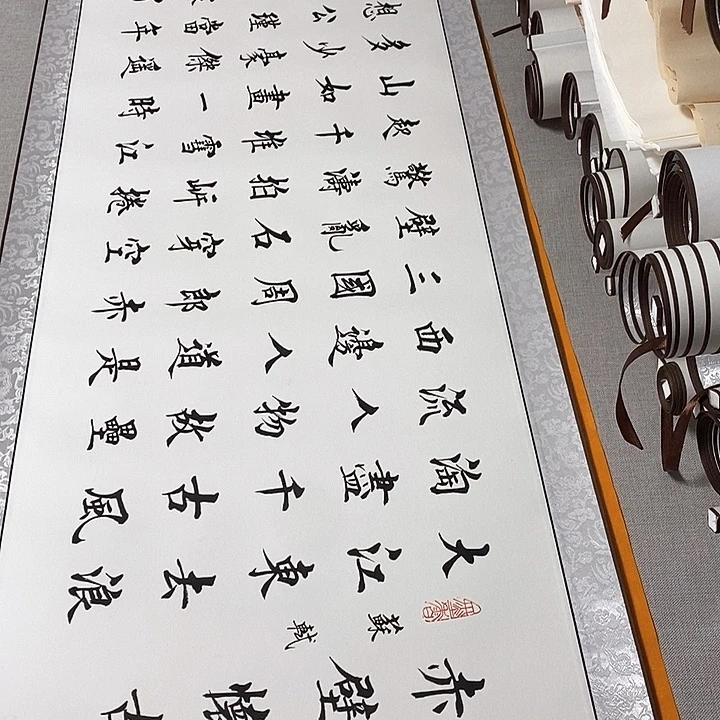 赤壁懷古
蘇軾
大江東去浪
淘盡千古風
流人物故壘
西邊人道是
三國周郎赤
壁亂石穿空
驚濤拍岸捲
起千堆雪江
山如畫一時
多少豪傑遥
想公瑾當年